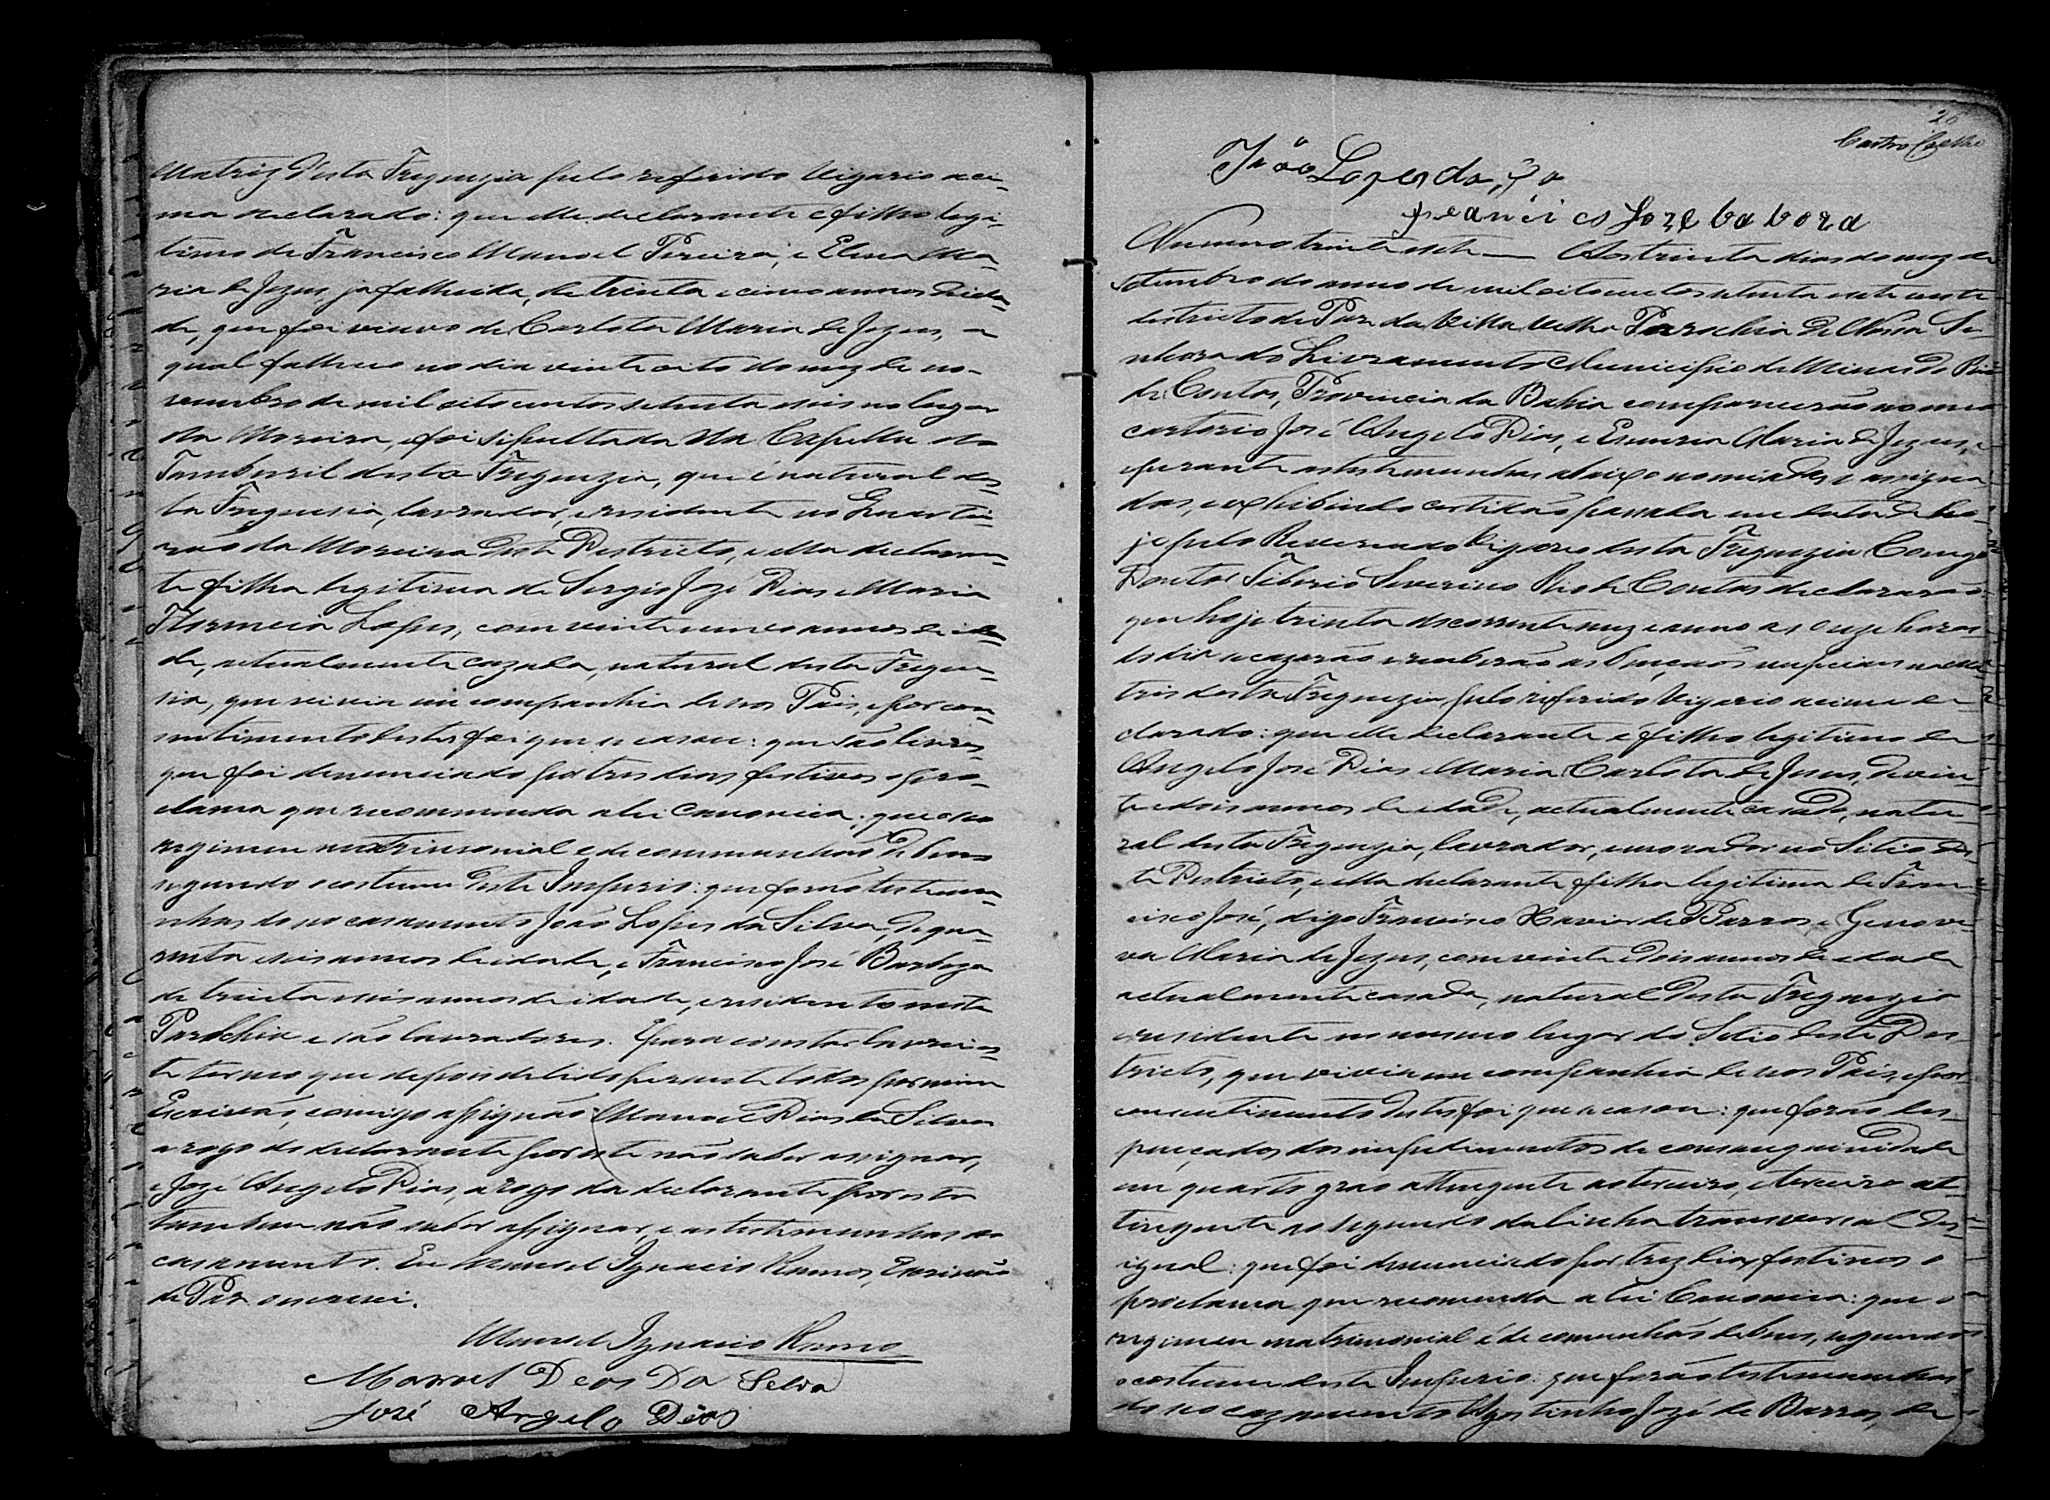 Matriz desta Freguezia pelo referido Vigario aci-
ma declarado: que elle declarante é filho legi-
timo de Francisco Manoel Pereira, e Elena Ma-
ria de Jezus, ja fallecida, de trinta e cinco annos de ida-
de, que foi viuvo de Carlota Maria de Jezus, a
qual falleceo no dia vinte oito do mez de no-
vembro de mil oito centos setenta e seis no lugar
da Moreira, e foi sepultada na Capella do
Tamboril desta Freguezia, que é natural des-
ta Freguesia, lavrador, e residente no Quartei-
rão da Moreira deste Destricto, e ella declaran-
te filha legitima de Sergio Jozé Dias e Maria
Florencia Lopes, com vinte e cinco annos de ida-
de, actualmente cazada, natural desta Fregue-
sia, que vivia em companhia de seos Pais, e por con-
sentimento destes foi que se casou: que são livres
que foi denunciado por tres dias festivos o pro-
clama que recommenda a lei canonica; que o seo
regimen matrimonial é de communhão de bens
segundo o costume deste Imperio: que forão testemu-
nhas do seo casamento João Lopes da Silva, de qua-
renta e seis annos de idade, e Francisco José Barboza
de trinta e seis annos de idade, e residentes nesta
Parochia e são lavradores. E para constar lavrei es-
te termo que depois de lido perante todos por mim
Escrivão, comigo assignão Manoel Dias da Silva
a rogo do declarante por este não saber assignar,
e Jozé Angelo Dias, a rogo da declarante por esta
tambem não saber assignar, e as testemunhas do
casamento. Eu Manoel Ignacio Ramos, Escrivão
de Paz o escrevi.
Manoel Ignacio Ramos
Manoel Deas Da Selva
José Angelo Dias
26
Castro Coelho
João Lopes da
francico Joze babora
Numero trinta e sete — Aos trinta dias do mez de
Setembro do anno de mil oito centos setenta e sete neste
destricto de Paz da Villa Velha Parochia de Nossa Se-
nhora do Livramento Municipio de Minas do Rio
de Contas, Provincia da Bahia comparecerão no meo
cartorio José Angelo Dias, e Maria de Jezus, e
perante as testemunhas abaixo nomeadas e assigna-
das, exhibindo certidão passada em data de ho-
je pelo Reverendo Vigario desta Freguezia Conego
Doutor Tiberio Severino Rio de Contas declararão
que hoje trinta do corrente mez e anno as onze horas
do dia se cazarão e receberão as bençãos nupciaes na Ma-
tris desta Freguezia pelo referido Vigario acima de-
clarado: que elle declarante é filho legitimo de
Angelo José Dias e Maria Carlota de Jesus, de vin-
te e dois annos de idade, actualmente casado, natu-
ral desta Freguezia, lavrador, e morador no Sitio des-
te Destricto, e ella declarante filha legitima de Fran-
cisco José, digo Francisco Xavier de Barros, e Genove-
va Maria de Jezus, com vinte e dois annos de idade
actualmente casada, natural desta Freguezia
e residente no mesmo lugar do Sitio deste Des-
tricto, que vivia em companhia de seos Pais, e por
consentimento destes foi que se casou: que forão des-
pençados dos impedimentos de consanguinidade
em quarto grao attingente ao terceiro, e terceiro at-
tingente ao segundo da linha transversal des-
igual: que foi denunciado por trez dias festivos o
proclama que recomenda a lei Canonica: que o
regimen matrimonial é de comunhão de bens, segundo
o costume deste Imperio: que forão testemunhas
do seo cazamento Agostinho Jozé de Barros, de